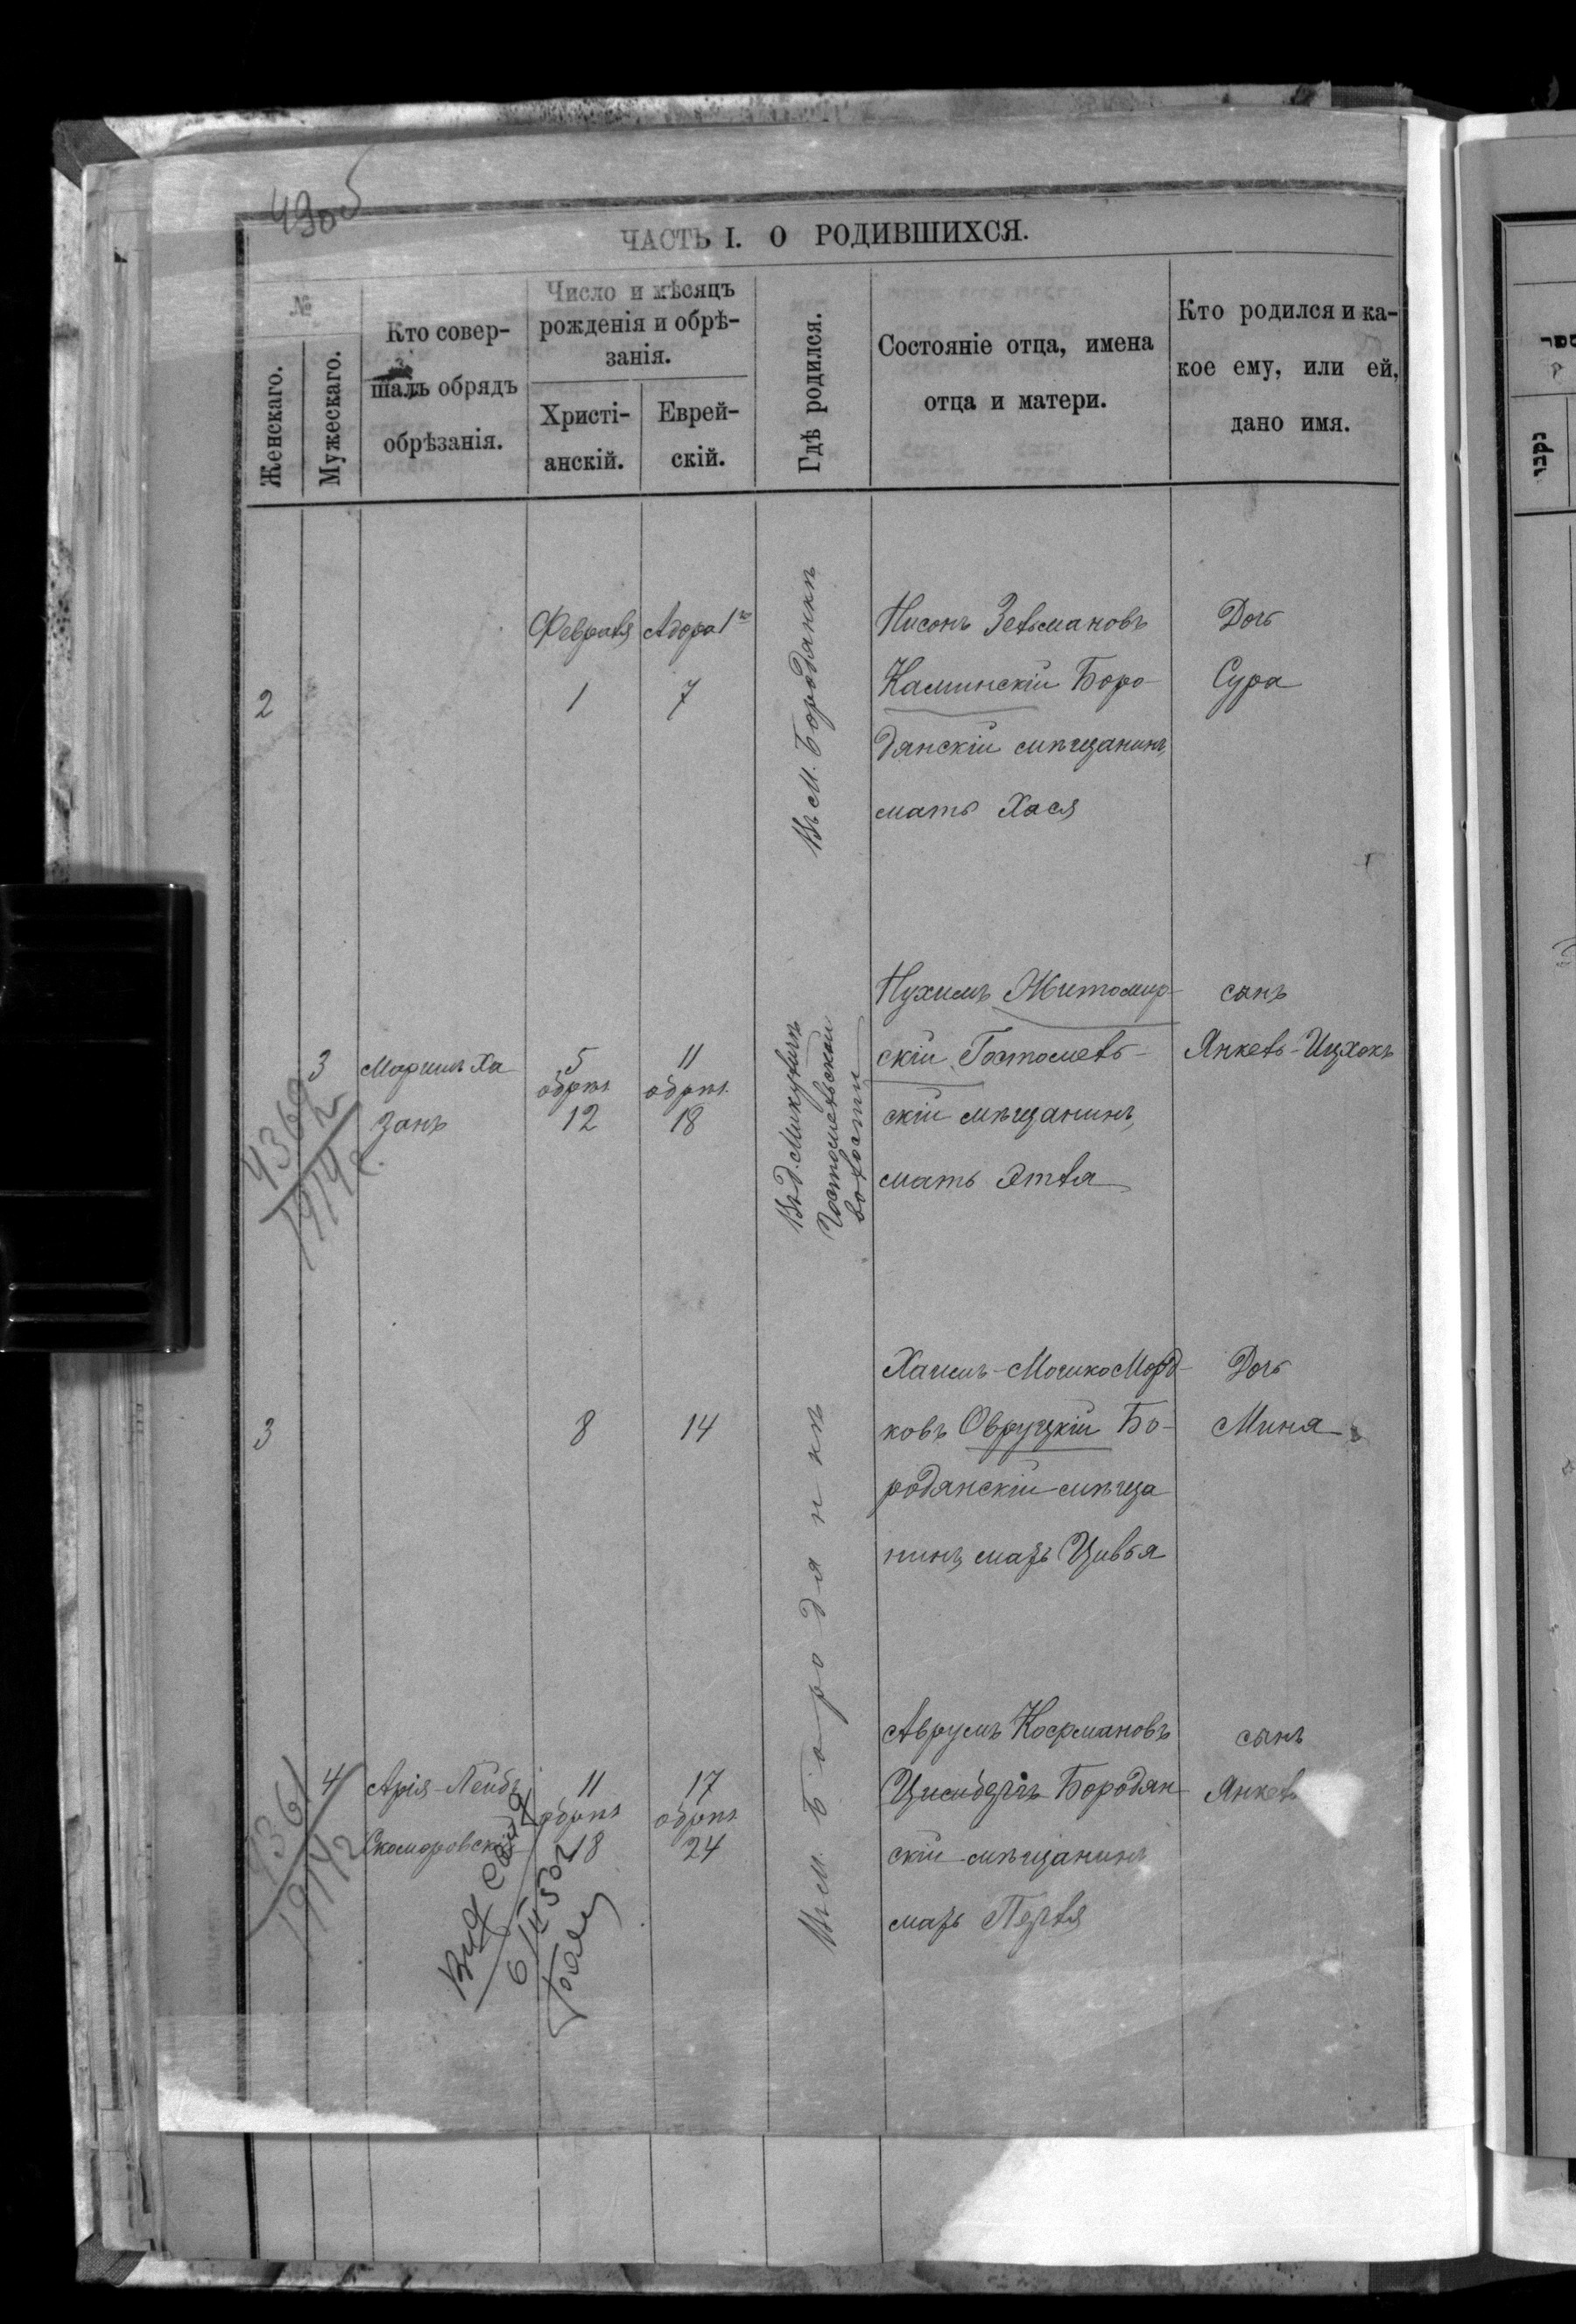 49об
ЧАСТЬ I. О РОДИВШИХСЯ.
№
Женскаго.
Мужескаго.
Кто совер-
шалъ обрядъ
обрѣзанія.
Число и мѣсяцъ
рожденія и обрѣ-
занія.
Христі-
анскій.
Еврей-
скій.
Гдѣ родился.
Состояніе отца, имена
отца и матери.
Кто родился и ка-
кое ему, или ей,
дано имя.
2
Февраля
1
Адора 1го
7
Въ м. Бородянкѣ
Нисонъ Зельмановъ
Каминскій Боро-
дянскій мѣщанинъ,
мать Хася
Дочь
Сура
3
Моргилъ Ха
занъ
5
обрѣз.
12
11
обрѣз.
18
Въ д. Микуличѣ
Гостомельской
волости
Нухимъ Житомир-
скій Гостомель-
скій мѣщанинъ,
мать Этля
сынъ
Янкель-Ицхокъ
1914 г.
3
8
14
Въ м. Бородянкѣ
Хаимъ-Мошко Морд-
ковъ Овруцкій Бо-
родянскій мѣща
нинъ, мать Цивья
Дочь
Миня
4
Арія-Лейбъ
Скоморовскій
11
обрѣз
18
17
обрѣз.
24
Аврумъ Косрмановъ
Бородян
скій мѣщанинъ
мать Перля
сынъ
Янкель
1914
נקבו